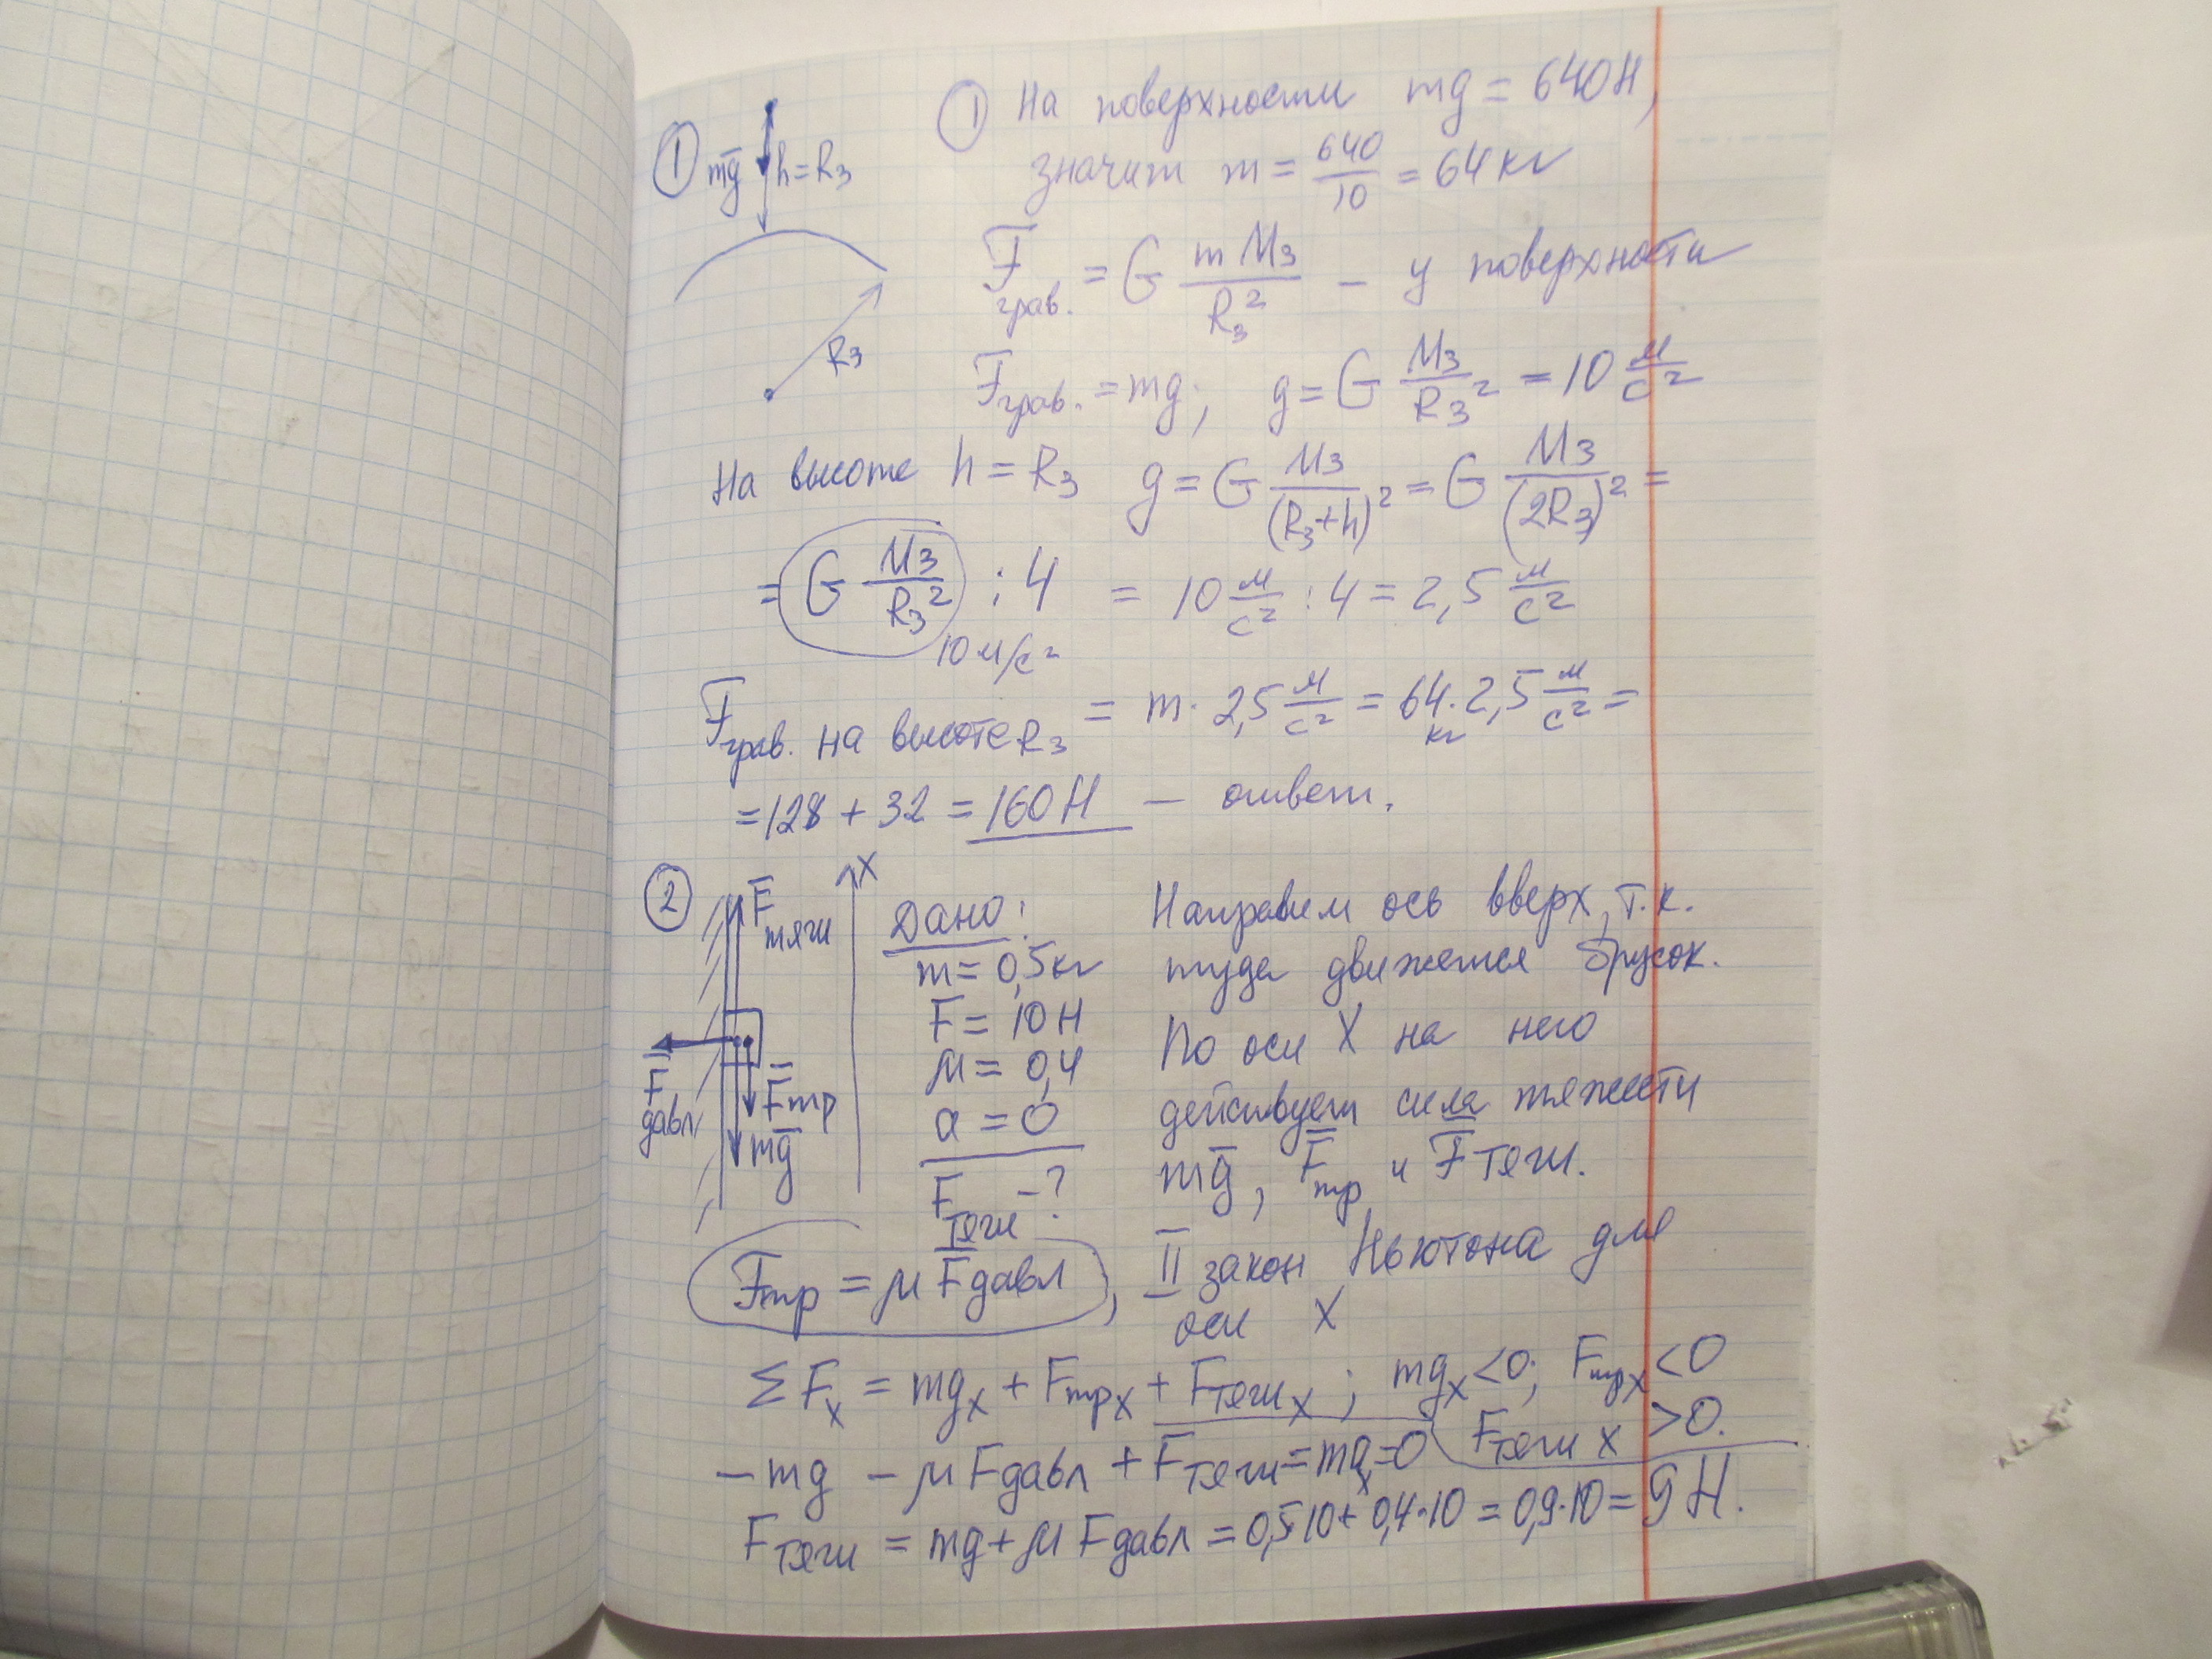 ① mg h=R₃
① На поверхности mg = 640Н,
значит m = 640/10 = 64 кг
R₃
Fграв. = G mM₃/R₃² – у поверхности
Fграв. = mg; g = G M₃/R₃² = 10 м/с²
На высоте h = R₃ g = G M₃/(R₃+h)² = G M₃/(2R₃)² =
= G M₃/R₃² : 4 = 10 м/с² : 4 = 2,5 м/с²
10 м/с²
Fграв. на высоте R₃ = m · 2,5 м/с² = 64 кг · 2,5 м/с² =
= 128 + 32 = 160 Н – ответ.
②
Fтяги
X
Fдавл
Fтр
mg
Дано:
m = 0,5 кг
F = 10 Н
μ = 0,4
a = 0
Fтяги – ?
Направим ось вверх, т.к.
туда движется брусок.
По оси X на него
действует сила тяжести
mg, Fтр и Fтяги.
Fтр = μ Fдавл, II закон Ньютона для
оси X
ΣFx = mgx + Fтрx + Fтягиx; mgx < 0; Fтрx < 0
Fтяги x > 0.
– mg – μ Fдавл + Fтяги = max = 0
Fтяги = mg + μ Fдавл = 0,5·10 + 0,4·10 = 0,9·10 = 9 Н.